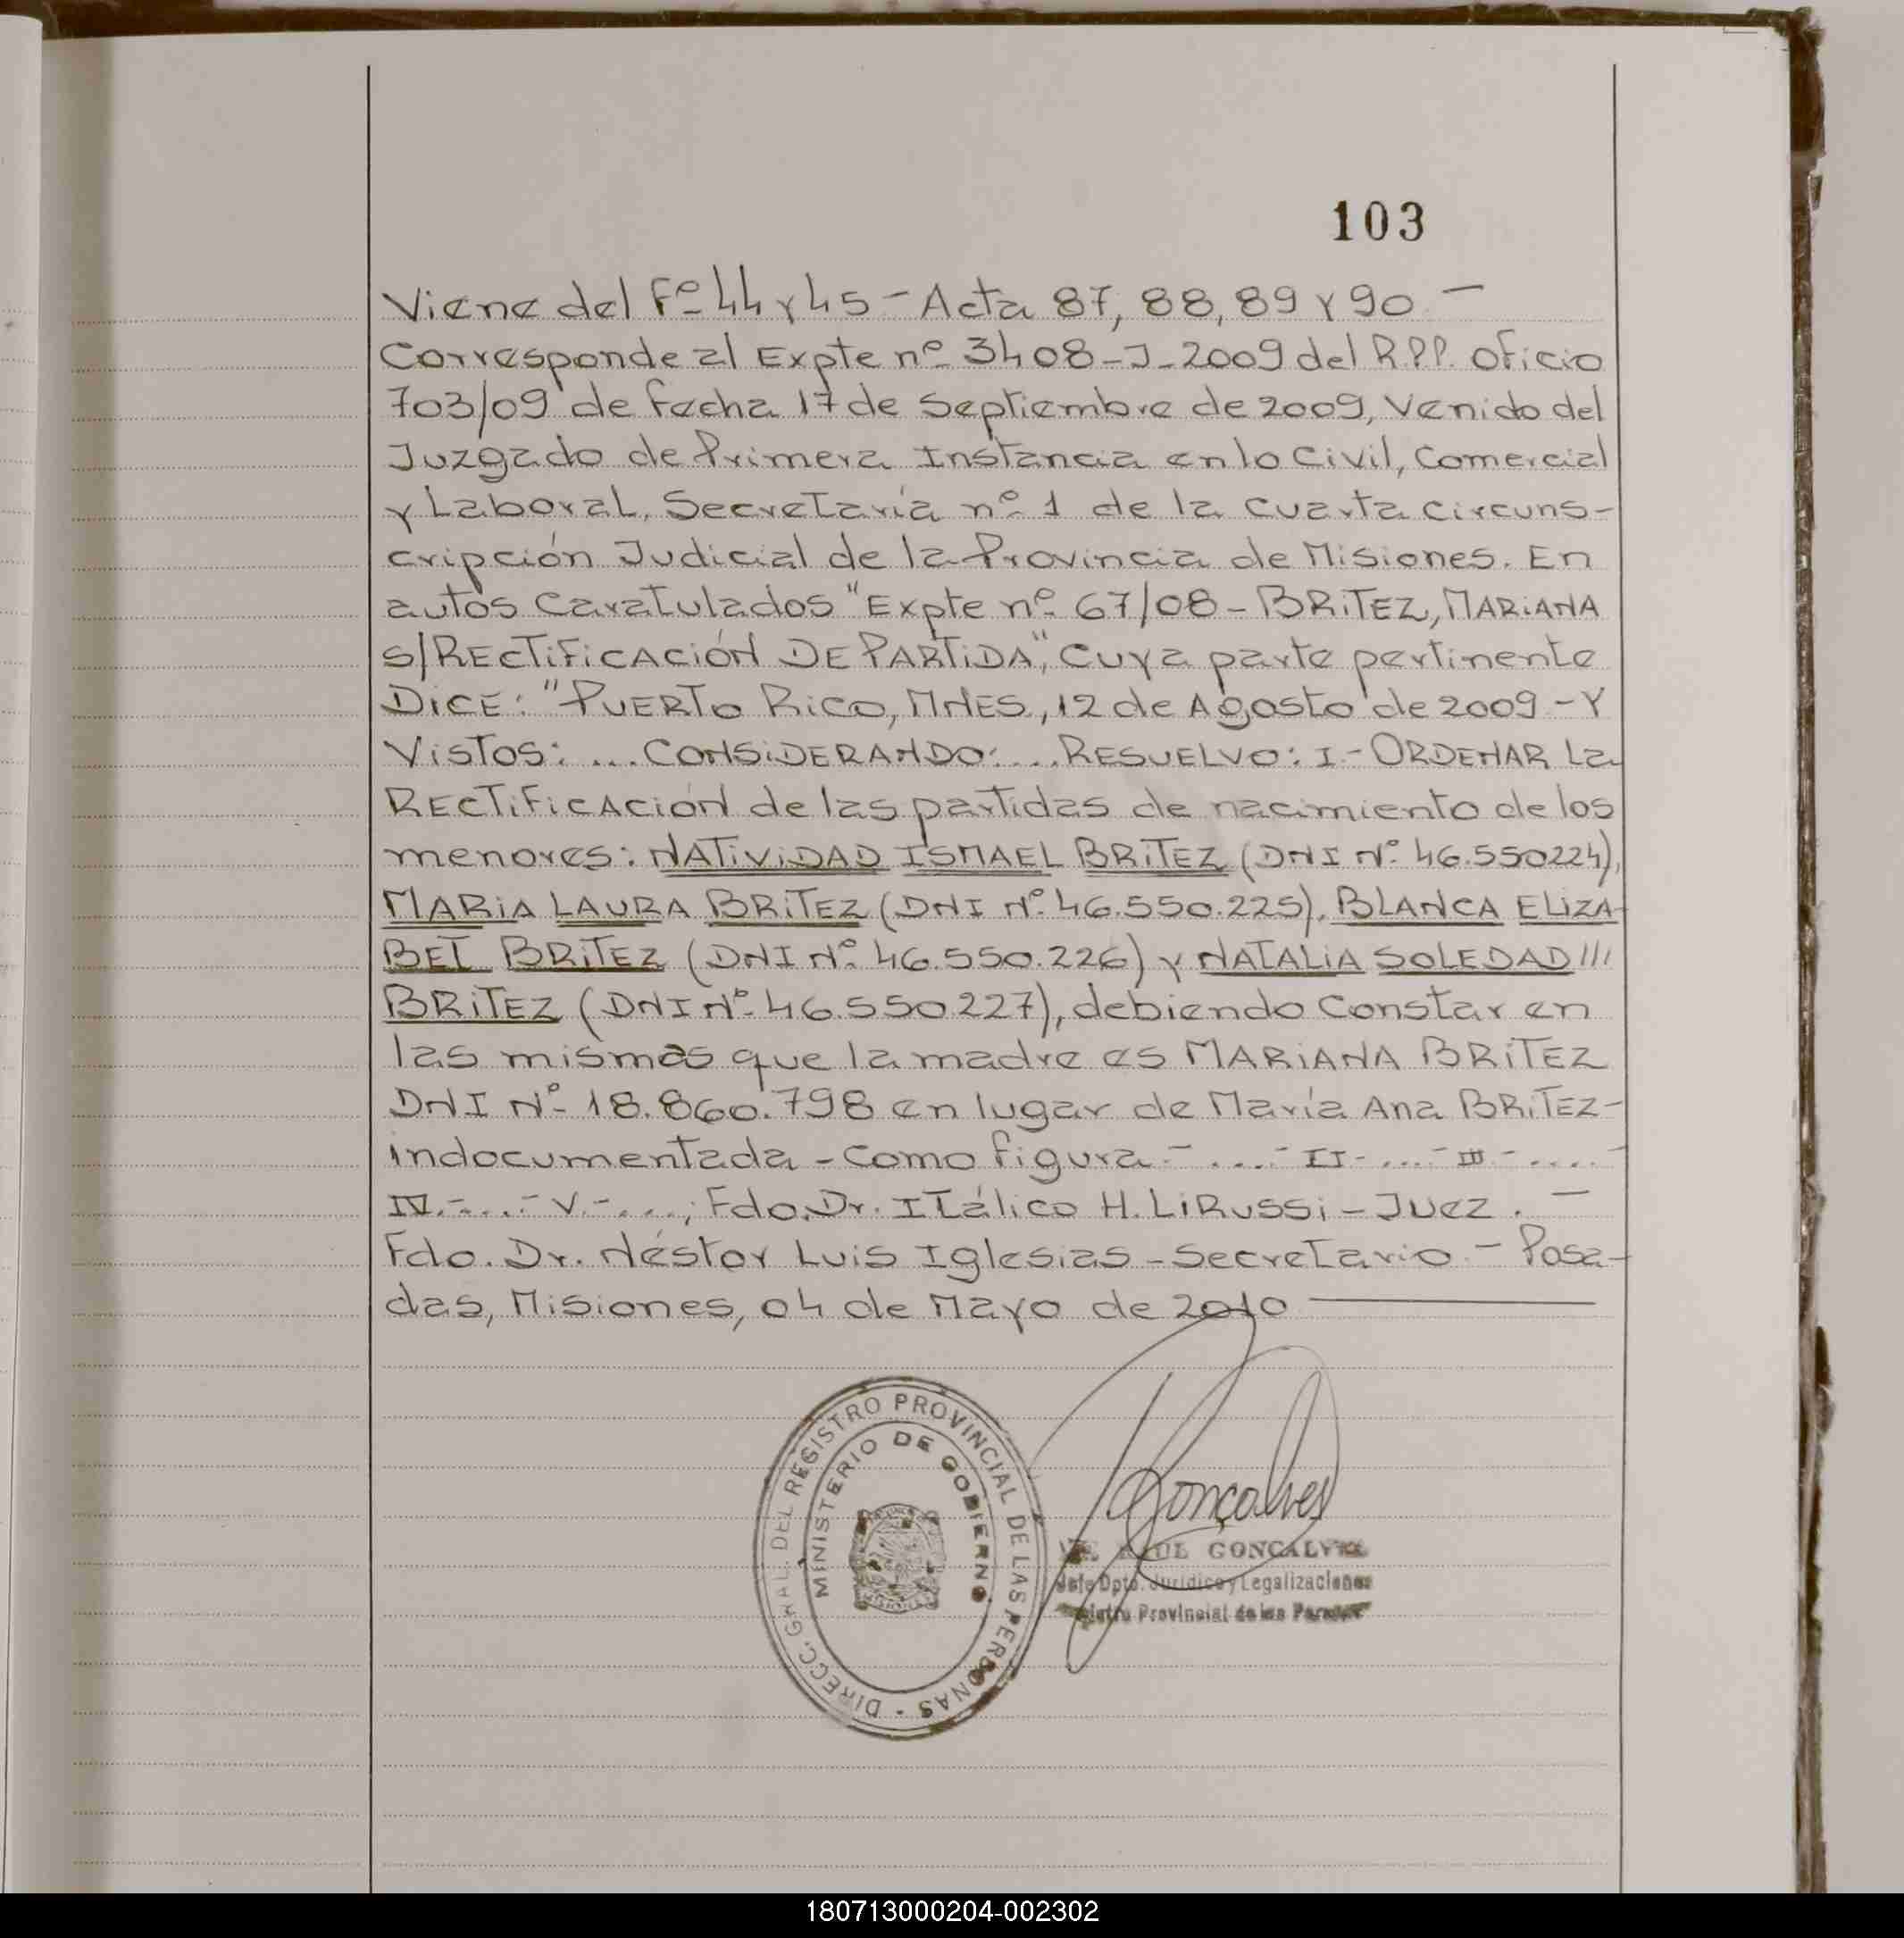 103
Viene del Fº 44 y 45 - Acta 87, 88, 89 y 90 -
Corresponde al Expte nº 3408-J-2009 del R.P.P. oficio
703/09 de fecha 17 de Septiembre de 2009, Venido del
Juzgado de Primera Instancia en lo Civil, Comercial
y Laboral, Secretaría nº 1 de la Cuarta Circuns-
cripción Judicial de la Provincia de Misiones. En
autos Caratulados "Expte nº 67/08 - BRiTEZ, MARiANA
s/RECTiFiCACiÓN DE PARTiDA", Cuya parte pertinente
DiCE: "PUERTo RiCO, MNES, 12 de Agosto de 2009 - Y
ViSTOS: ... CONSiDERANDO: ... RESUELVO: I.- ORDENAR La
RECTiFiCACiÓN de las partidas de nacimiento de los
menores: NATiViDAD ISMAEL BRiTEZ (DNI Nº 46.550224),
MARiA LAURA BRiTEZ (DNI Nº 46.550.225), BLANCA ELiZA-
BET BRiTEZ (DNI Nº 46.550.226) y NATALiA SOLEDAD ///
BRiTEZ (DNI Nº 46.550227), debiendo Constar en
las mismas que la madre es MARiANA BRiTEZ
DNI Nº 18.860.798 en lugar de María Ana BRiTEZ-
indocumentada - Como figura.- ....- II - ...- III - ....-
IV.- ....- V.- ....; Fdo. Dr. Itálico H. LiRussi - Juez. -
Fdo. Dr. Néstor Luis Iglesias - Secretario. - Posa-
das, Misiones, 04 de Mayo de 2010
DIRECC. GRAL. DEL REGISTRO PROVINCIAL DE LAS PERSONAS -
MINISTERIO DE GOBIERNO
Gonçalves
GONCALVES
Jefe Dpto. Jurídico y Legalizaciones
Provincial de las Personas
180713000204-002302